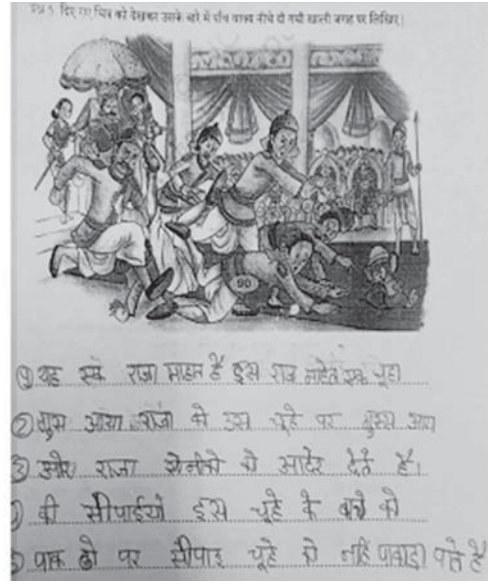 प्रश्न 5: दिए गए चित्र को देखकर उसके बारे में पाँच वाक्य नीचे दी गयी खाली जगह पर लिखिए।
90
① यह एक राजा माहल है इस राज माहेल एक चूहा
② गुस आया राजा को उस चूहे पर गुस्स आय
③ और राजा सेनीको को आदेर देते है।
की सीपाईयों इस चूहे के को
पाक ढो पर सीपाइ चूहे को नाहि पाकाड़ा पाते है